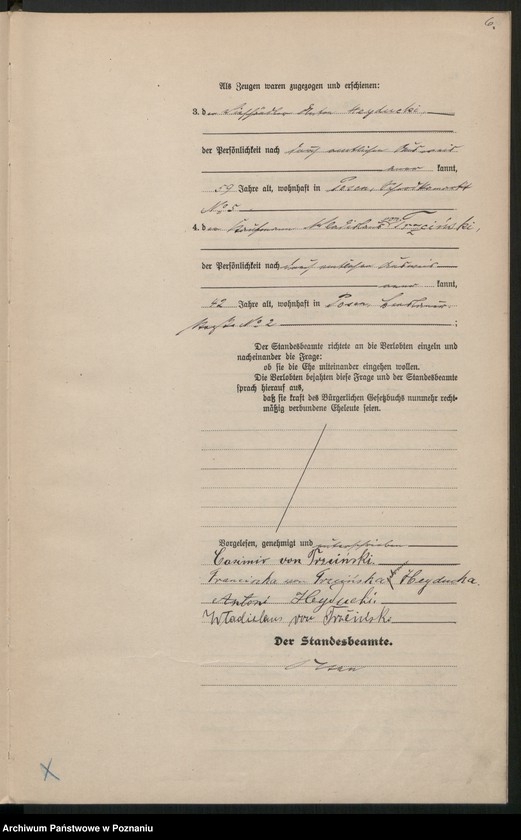 6.
Als Zeugen waren zugezogen und erschienen:
3. der Anton Heyducki,
der Persönlichkeit nach durch amtlichen Ausweis
kannt,
59 Jahre alt, wohnhaft in Posen,
No 5
4. der Kaufmann Wladislaus von Trzciński,
der Persönlichkeit nach durch amtlichen Ausweis
kannt,
42 Jahre alt, wohnhaft in Posen,
No 2 ;
Der Standesbeamte richtete an die Verlobten einzeln und
nacheinander die Frage:
ob sie die Ehe miteinander eingehen wollen.
Die Verlobten bejahten diese Frage und der Standesbeamte
sprach hierauf aus,
daß sie kraft des Bürgerlichen Gesetzbuchs nunmehr recht-
mäßig verbundene Eheleute seien.
Vorgelesen, genehmigt und unterschrieben
Casimir von Trzciński.
Franciszka von Trzcińska Heyducka.
Antoni Heyducki
Wladislaus von Trzciński
Der Standesbeamte.
Archiwum Państwowe w Poznaniu